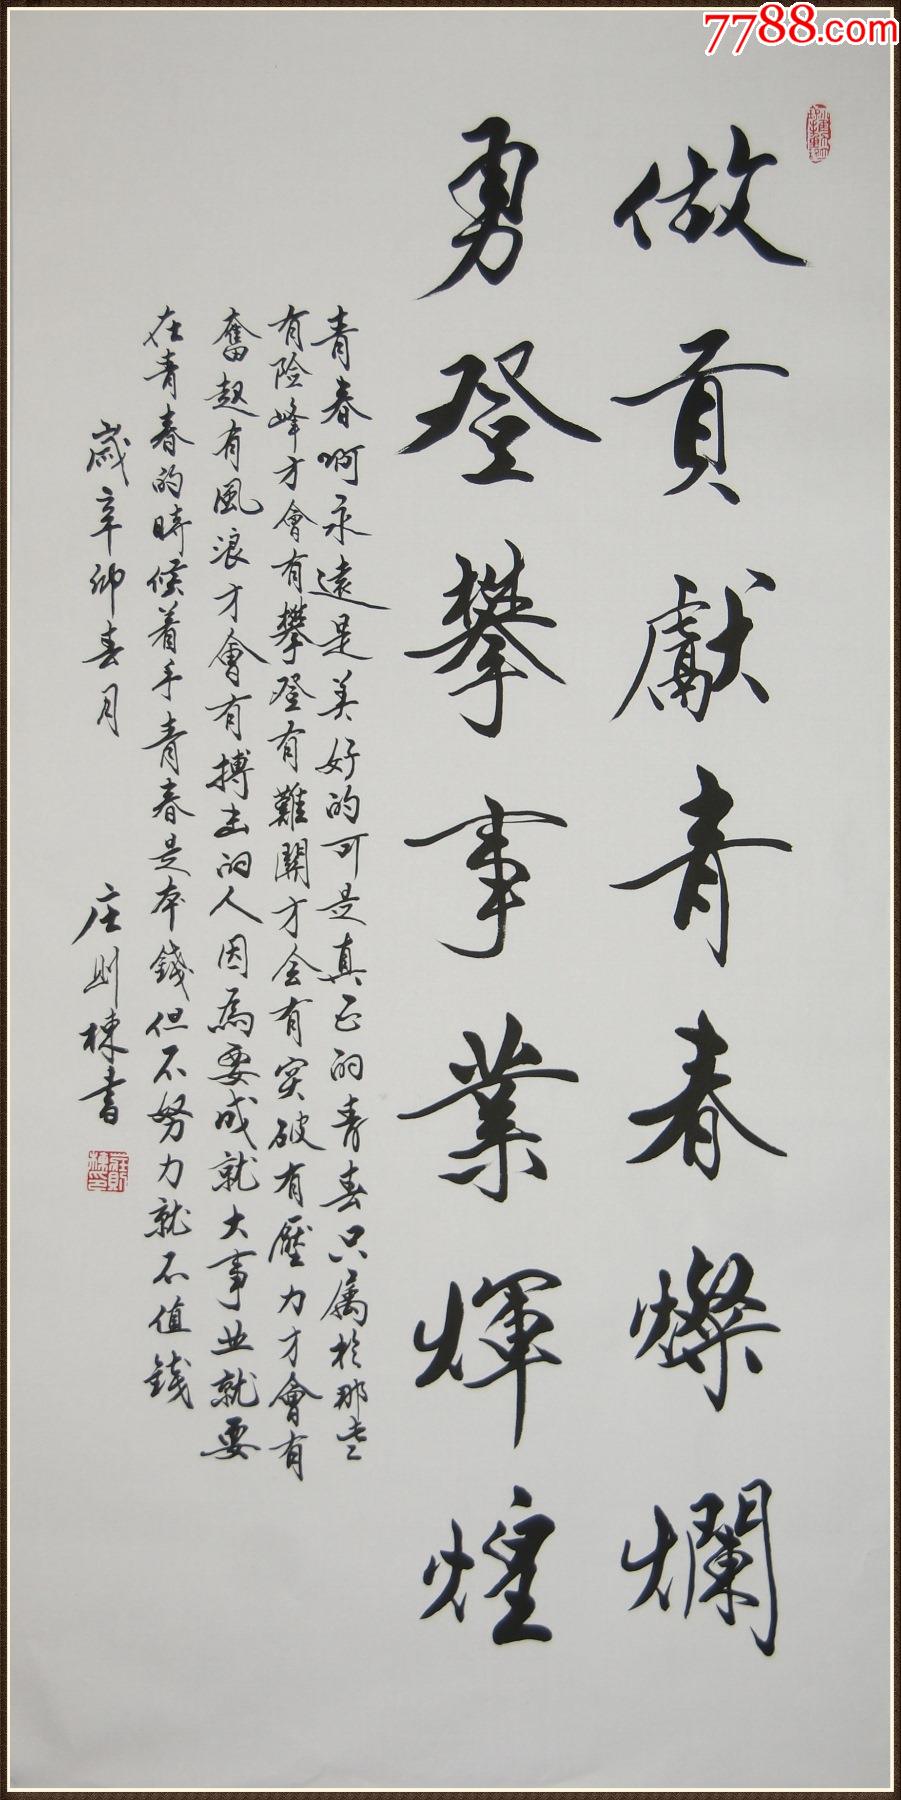 7788.com
做貢獻青春燦爛
勇登攀事業輝煌
青春啊永遠是美好的可是真正的青春只属於那些
有险峰才會有攀登有難關才会有突破有壓力才會有
奮起有風浪才會有搏击的人因為要成就大事业就要
在青春的時候着手青春是本錢但不努力就不值錢
歲辛卯春月 庄则棟書